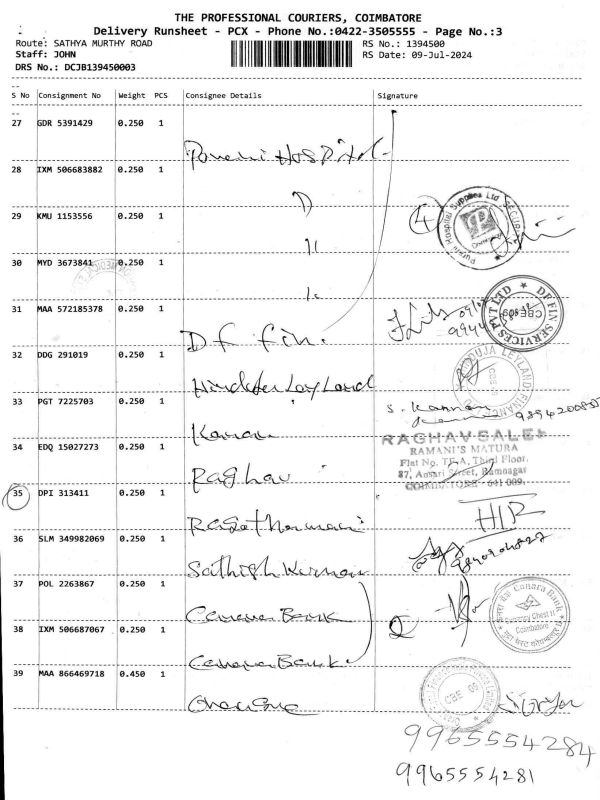 THE PROFESSIONAL COURIERS, COIMBATORE
Delivery Runsheet - PCX - Phone No.:0422-3505555 - Page No.:3
Route: SATHYA MURTHY ROAD RS No.: 1394500
Staff: JOHN RS Date: 09-Jul-2024
DRS No.: DCJB139450003
S No Consignment No Weight PCS Consignee Details Signature
27 GDR 5391429 0.250 1 HOSPital
28 IXM 506683882 0.250 1 "
29 KMU 1153556 0.250 1 " 4
30 MYD 3673841 0.250 1 "
31 MAA 572185378 0.250 1 D.F. fin.
DF FIN SERVICES PVT LTD
32 DDG 291019 0.250 1 Hinduja Leyland
HINDUJA LEYLAND FINANCE
33 PGT 7225703 0.250 1 Kanan
S. Kannan
34 EDQ 15027273 0.250 1 Raghav
RAGHAV SALES
RAMANI'S MATURA
Flat No. TF-A, Third Floor,
87, Ansari Street, Ramnagar
COIMBATORE - 641 009.
35 DPI 313411 0.250 1
36 SLM 349982069 0.250 1 Sathish Kumar
37 POL 2263867 0.250 1 Canara Bank
2
Canara Bank
Currency Chest II
Coimbatore
38 IXM 506687067 0.250 1 Canara Bank
39 MAA 866469718 0.450 1
CBE 09
9965554284
9965554281